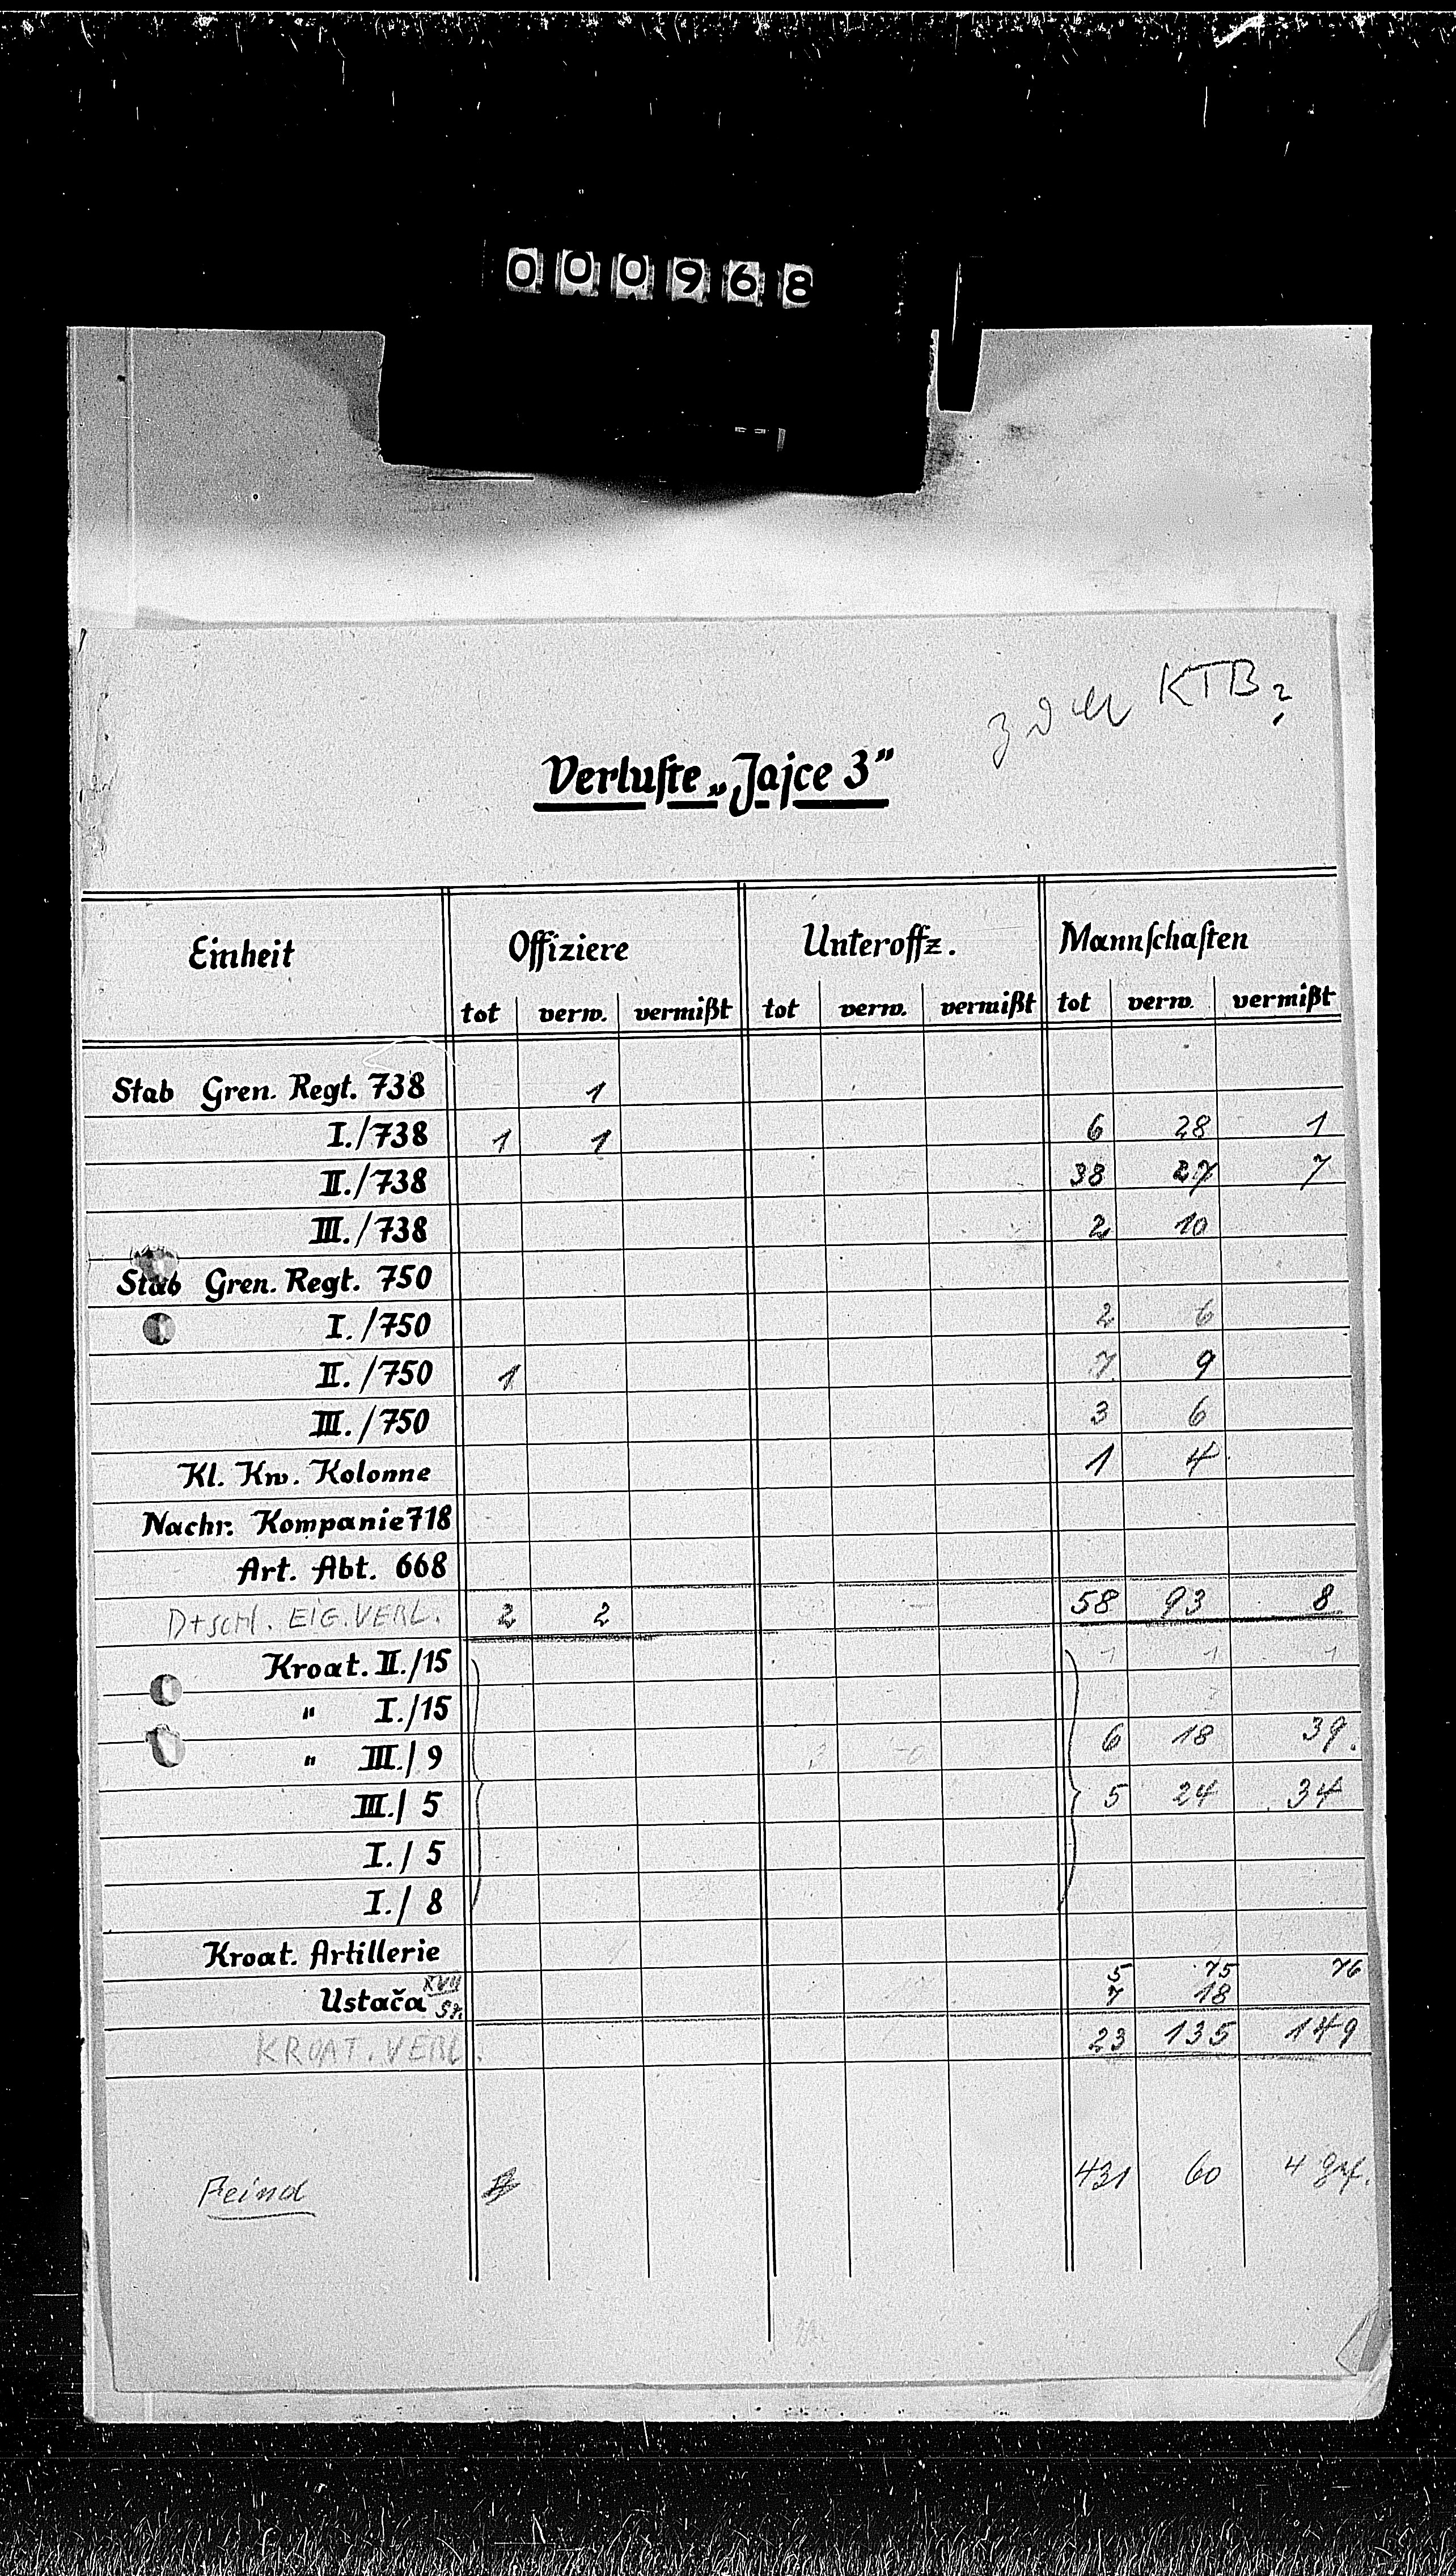 000968
KTB?
Verluste „Jajce 3”
Einheit Offiziere Unteroffz. Mannschaften
tot verw. vermißt tot verw. vermißt tot verw. vermißt
Stab Gren. Regt. 738 1
I./738 1 1 6 28 1
II./738 38 27 7
III./738 2 10
Stab Gren. Regt. 750
I./750 2 6
II./750 1 7 9
III./750 3 6
Kl. Kw. Kolonne 1 4
Nachr. Kompanie 718
Art. Abt. 668
Dtschl. EIG. VERL. 2 2 58 93 8
Kroat. II./15 1 1 1
" I./15
" III./9 6 18 39.
III./5 5 24 34
I./5
I./8
Kroat. Artillerie
5 75 76
Ustača XVII 7 18
KROAT. VERL. 23 135 149
Feind 431 60 4 gef.